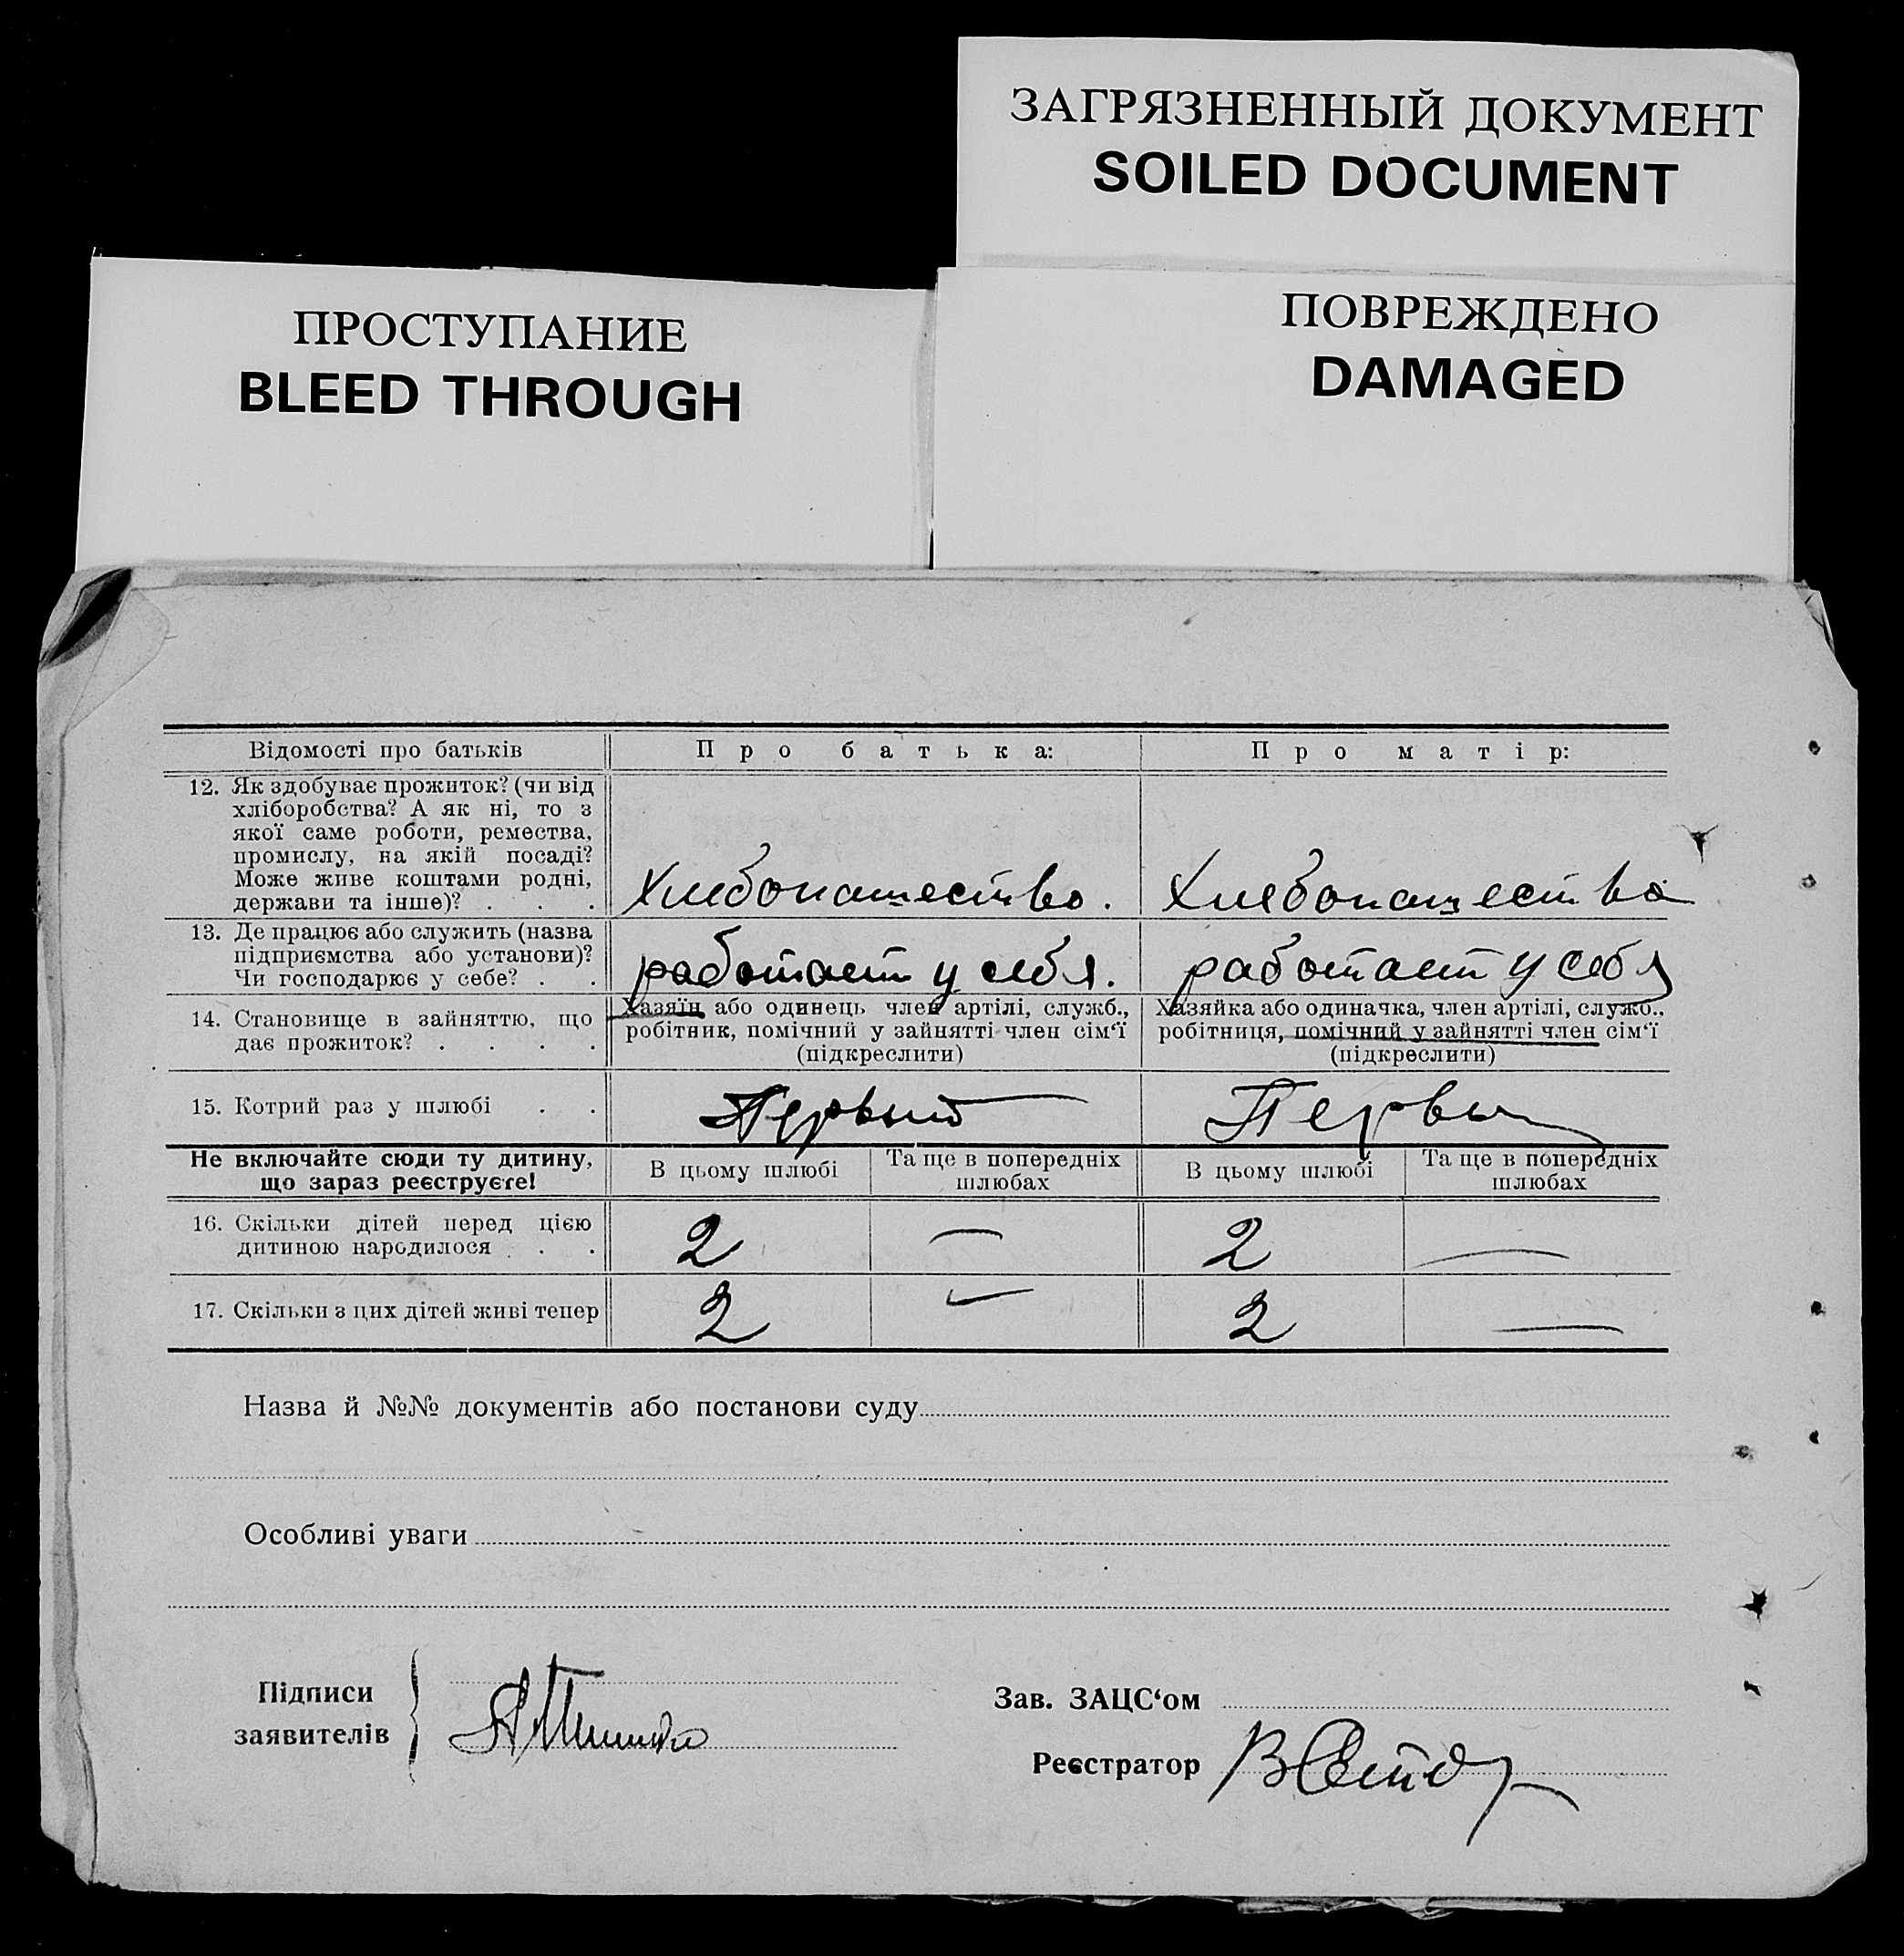 ЗАГРЯЗНЕННЫЙ ДОКУМЕНТ
SOILED DOCUMENT
ПРОСТУПАНИЕ
BLEED THROUGH
ПОВРЕЖДЕНО
DAMAGED
Відомості про батьків
Про батька:
Про матір:
12. Як здобуває прожиток? (чи від
хліборобства? А як ні, то з
якої саме роботи, ремества,
промислу, на якій посаді?
Може живе коштами родні,
держави та інше)? . . .
Хлебопашество.
Хлебопашество
13. Де працює або служить (назва
підприємства або установи)?
Чи господарює у себе? . .
работает у себя.
работает у себя
14. Становище в зайняттю, що
дає прожиток? . . . .
Хазяїн або одинець член артілі, служб.,
робітник, помічний у зайнятті член сім‘ї
(підкреслити)
Хазяйка або одиначка, член артілі, служб.,
робітниця, помічний у зайнятті член сім‘ї
(підкреслити)
15. Котрий раз у шлюбі . .
Первый
Первы
Не включайте сюди ту дитину,
що зараз реєструєте!
В цьому шлюбі
Та ще в попередніх
шлюбах
В цьому шлюбі
Та ще в попередніх
шлюбах
16. Скільки дітей перед цією
дитиною народилося . . .
2 — 2 —
17. Скільки з цих дітей живі тепер
2 — 2 —
Назва й №№ документів або постанови суду
Особливі уваги
Підписи
заявителів
Зав. ЗАЦС‘ом
Реєстратор